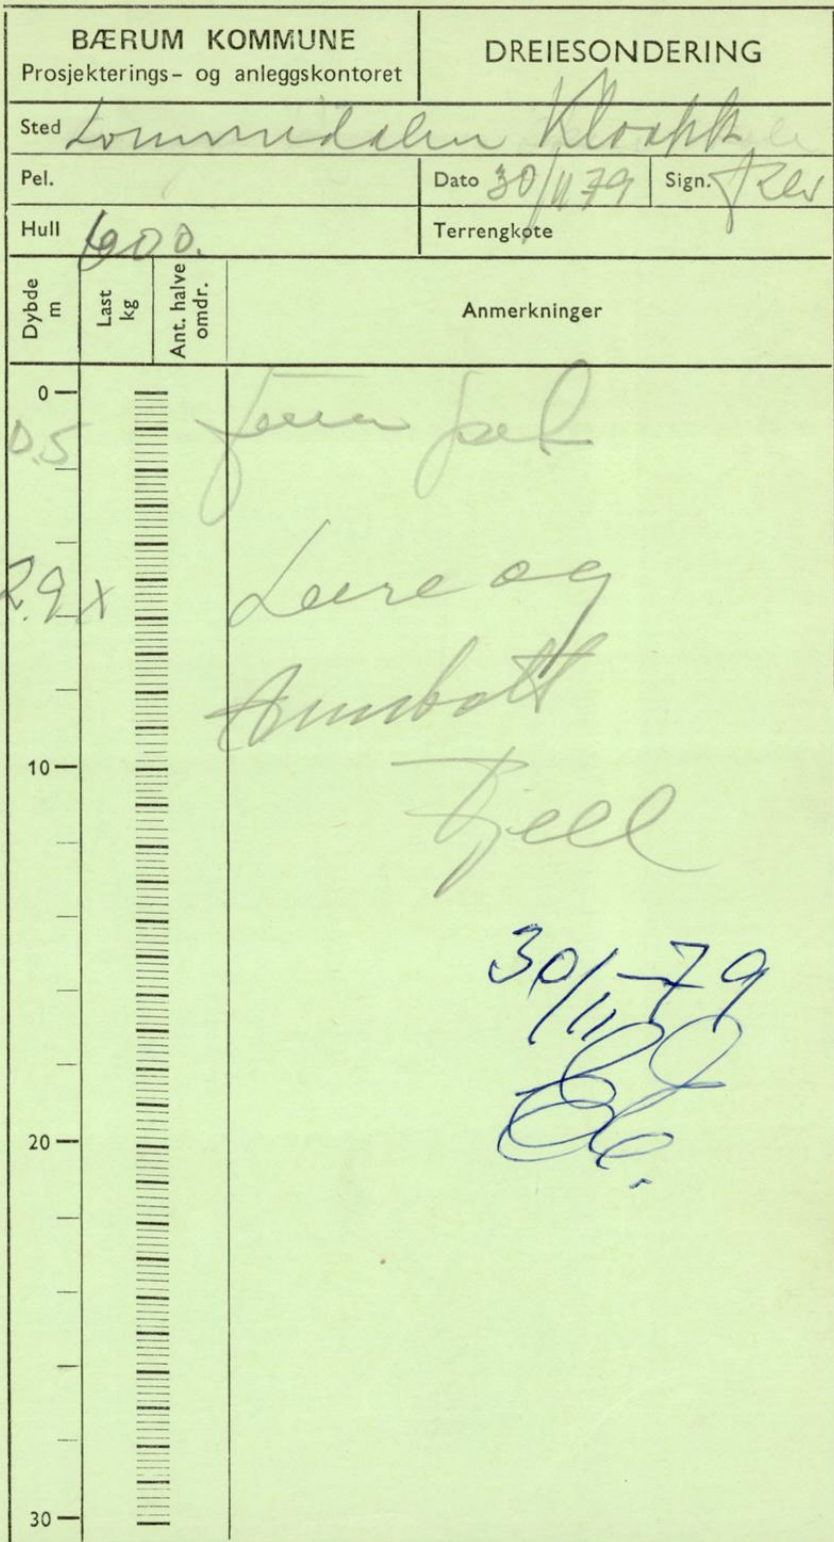 BÆRUM KOMMUNE
Prosjekterings- og anleggskontoret
DREIESONDERING
Sted Lommedalen Kloakk
Pel.
Dato 30/11 79
Sign.
Hull 600.
Terrengkote
Dybde m
Last kg
Ant. halve omdr.
Anmerkninger
0
0.5
2.9 x
Leire og
Fjell
10
30/11-79
20
30